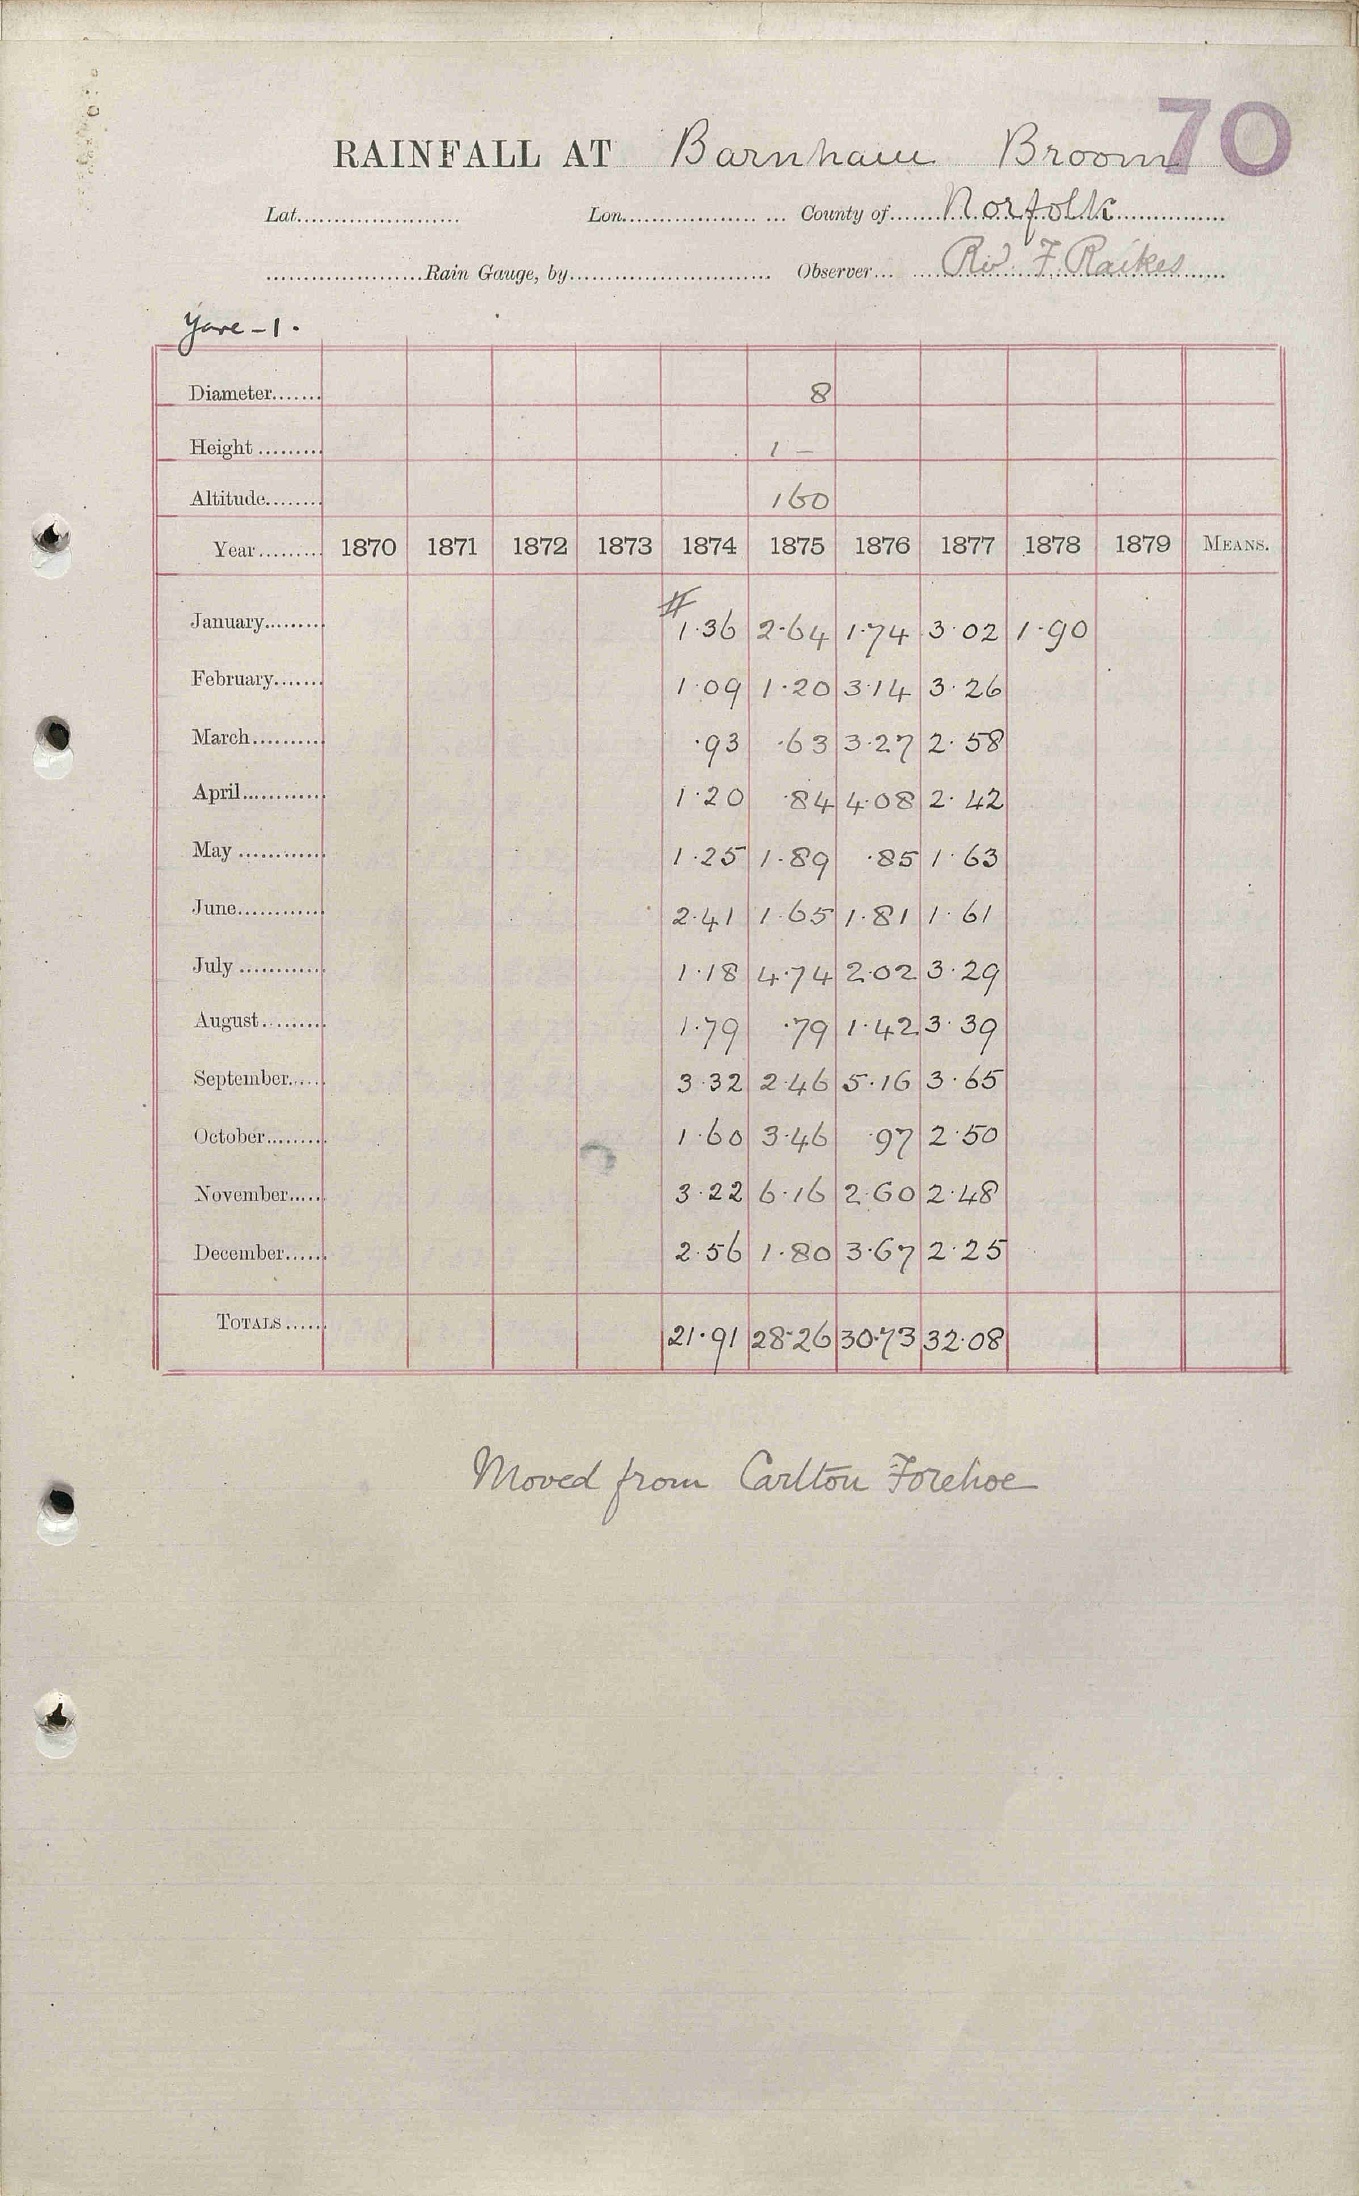 70
RAINFALL AT Barnham Broom
Lat...................... Lon................... ... County of.......Norfolk...............
......................Rain Gauge, by............................ Observer... ....Rev. F. Raikes......
Yare - 1.
Diameter....... 8
Height ......... 1 -
Altitude........ 160
Year......... 1870 1871 1872 1873 1874 1875 1876 1877 1878 1879 MEANS.
#
January......... 1.36 2.64 1.74 3.02 1.90
February....... 1.09 1.20 3.14 3.26
March.......... .93 .63 3.27 2.58
April............ 1.20 .84 4.08 2.42
May ............ 1.25 1.89 .85 1.63
June............ 2.41 1.65 1.81 1.61
July ............ 1.18 4.74 2.02 3.29
August.......... 1.79 .79 1.42 3.39
September...... 3.32 2.46 5.16 3.65
October......... 1.60 3.46 .97 2.50
November...... 3.22 6.16 2.60 2.48
December...... 2.56 1.80 3.67 2.25
TOTALS ...... 21.91 28.26 30.73 32.08
Moved from Carlton Forehoe